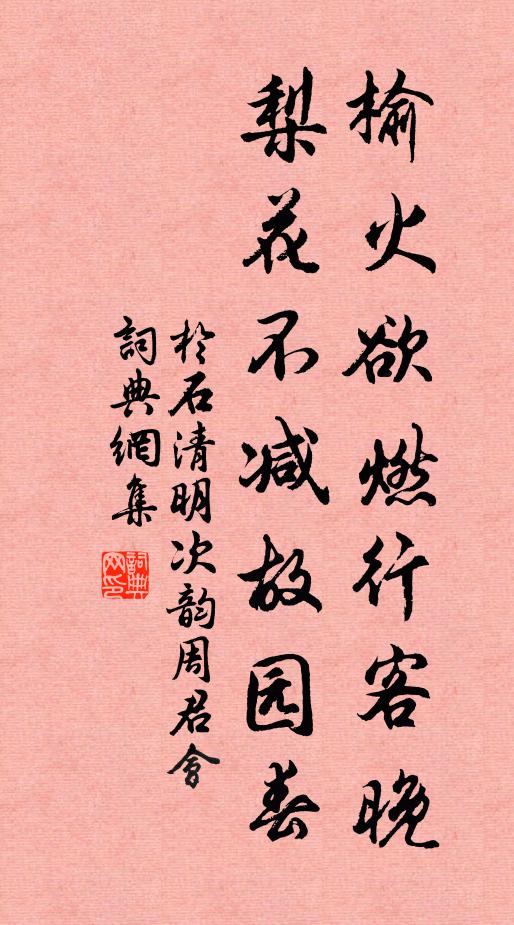 榆火欲燃行客晚
梨花不减故园春
於石清明次韵周君會
詞典網集
詞典网印